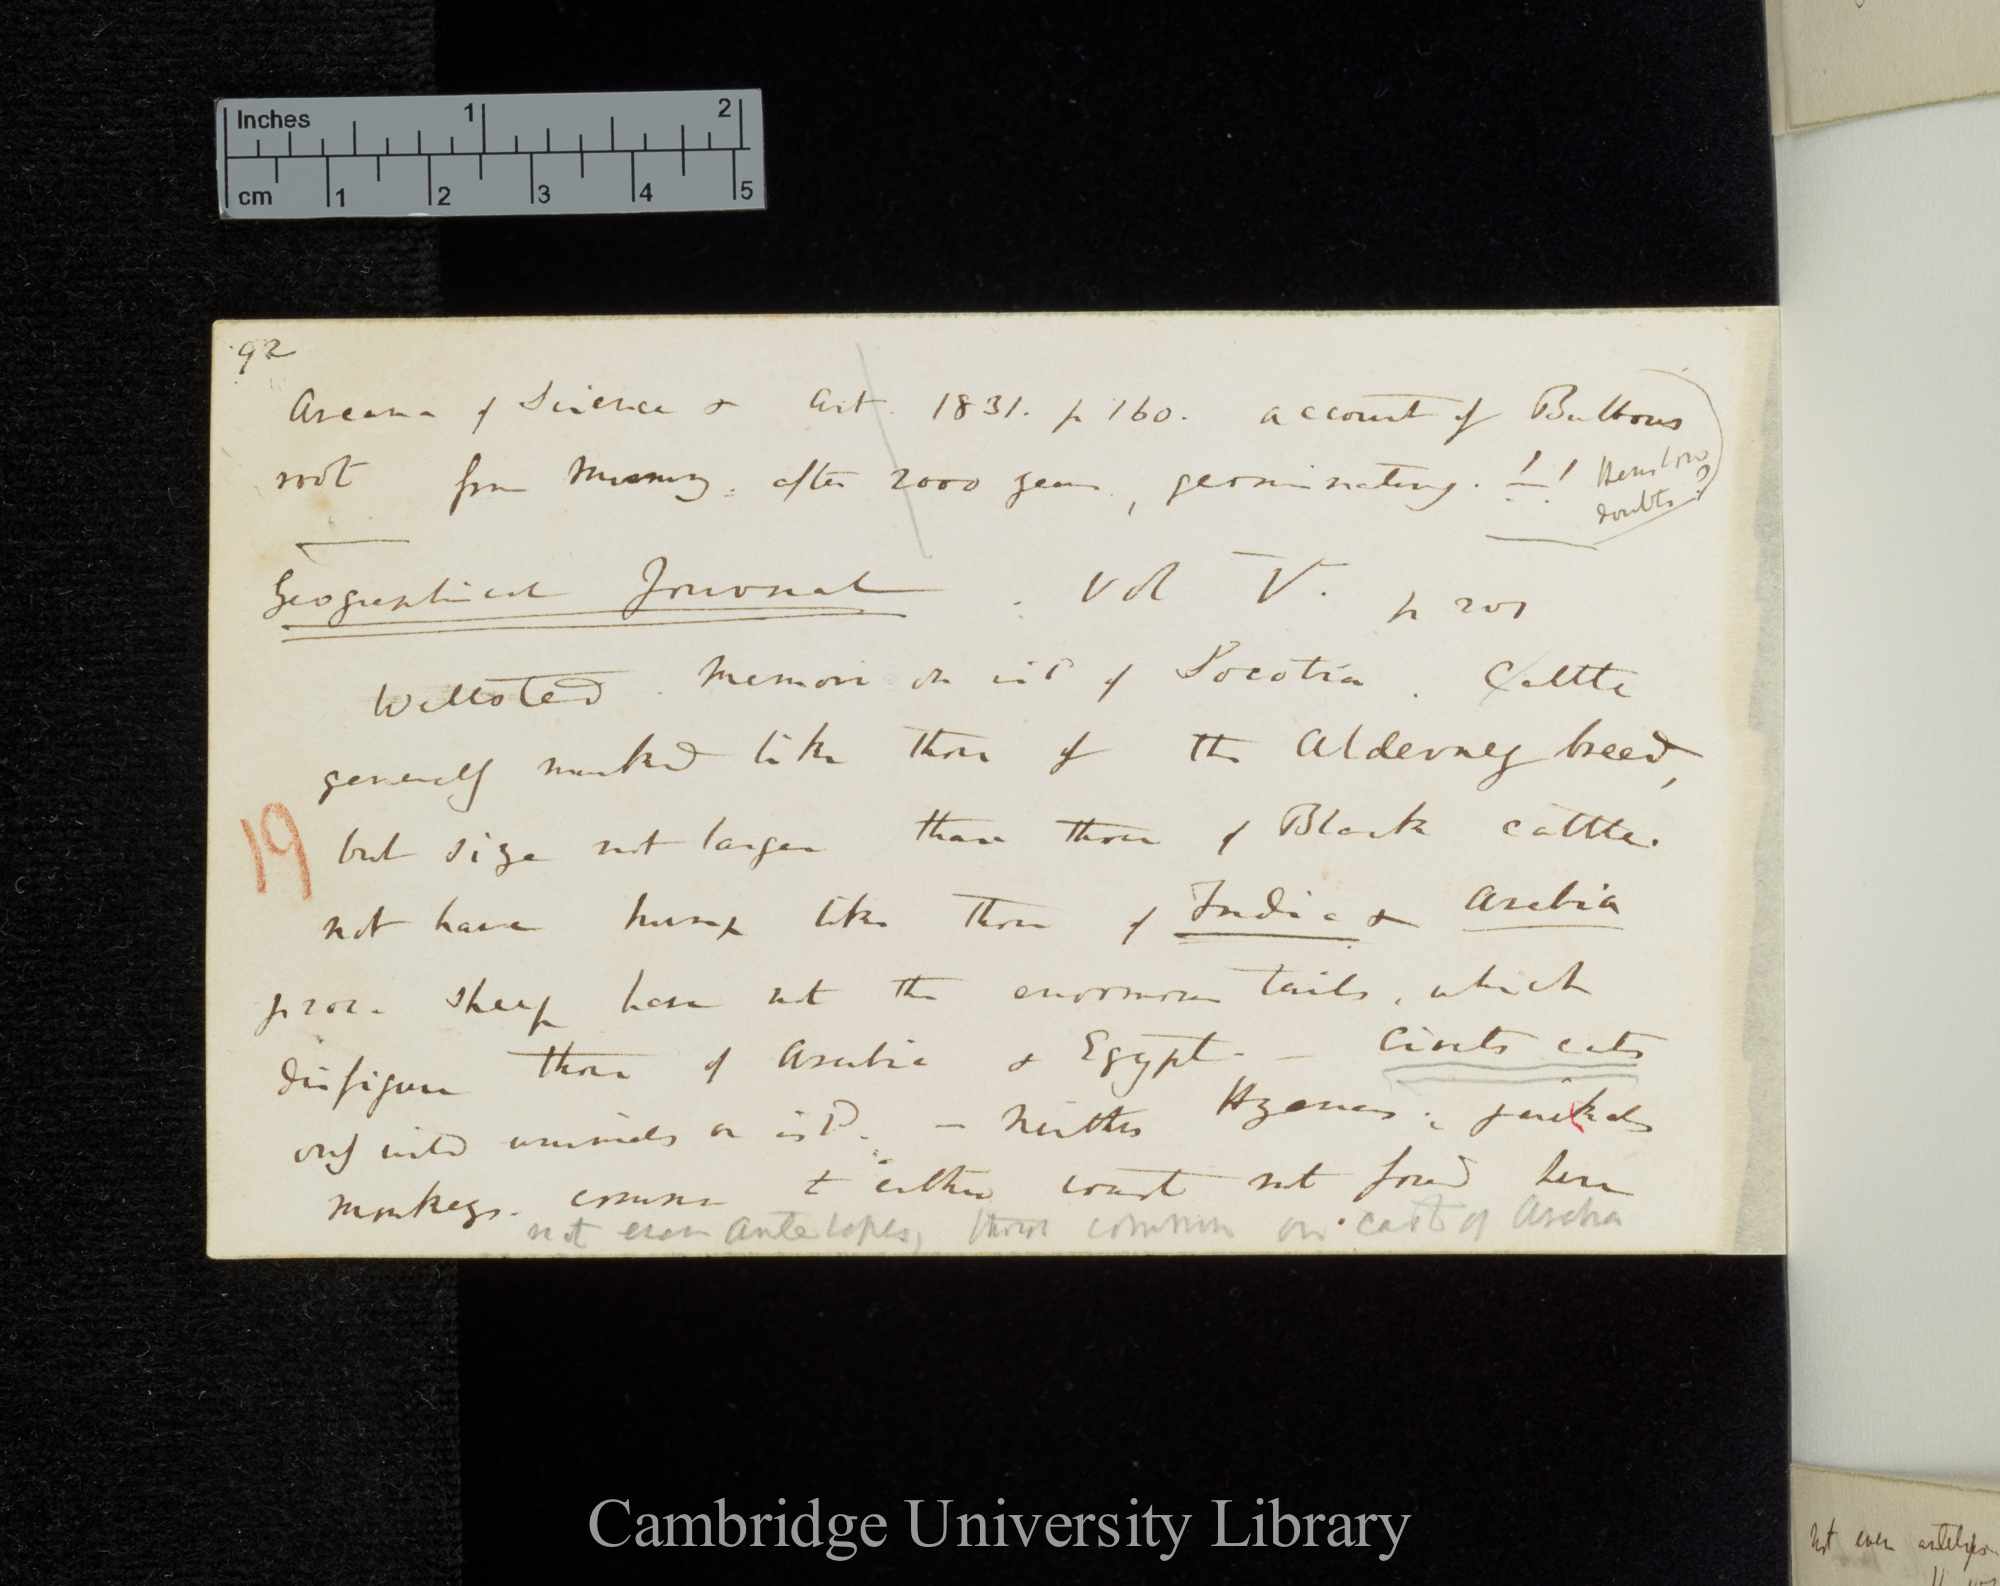 Inches 1 2
cm 1 2 3 4 5
92
Arcana of Science & Art. 1831. p 160. account of Bulbous
root from Mummy. after 2000 years, germinating. !! Henslow
doubts
Geographical Journal. Vol V. p 201
Wellsted. Memoir on isld of Socotra. Cattle
generally marked like those of the Alderney breed,
but size not larger than those of Black cattle.
not have hump like those of India & Arabia
p 202. sheep have not the enormous tails, which
disfigure those of Arabia & Egypt. — Civets cats
only wild animals on isld. — Neither Hyenas, jackals
monkeys. common t either coast not found here
not even antelopes, those common on coast of Arabia
19
Not even antelopes
Cambridge University Library